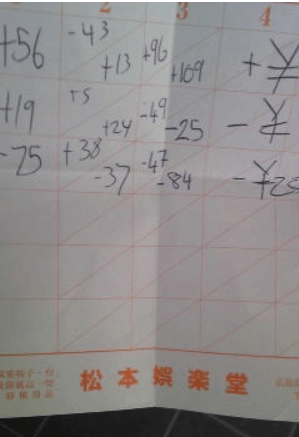 2 3 4
+56 -43 +13 +96 +109 +¥
+19 +5 +24 -49 -25 -¥
-75 +38 -37 -47 -84 -¥20
松本娯楽堂